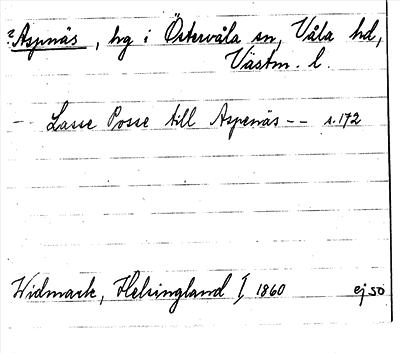 ? Aspnäs, hg i Östervåla sn, Våla hd,
Västm. l.
- Lasse Posse till Aspenäs -- s. 172
Widmark, Helsingland I, 1860 ej so